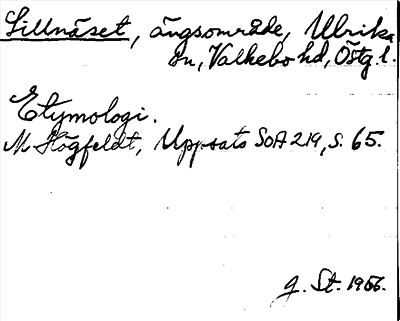 Sillnäset, ängsområde, Ulrika
sn, Valkebo hd, Östg. l.
Etymologi.
M Högfeldt, Uppsats SOA 219, s. 65.
G. St. 1966.